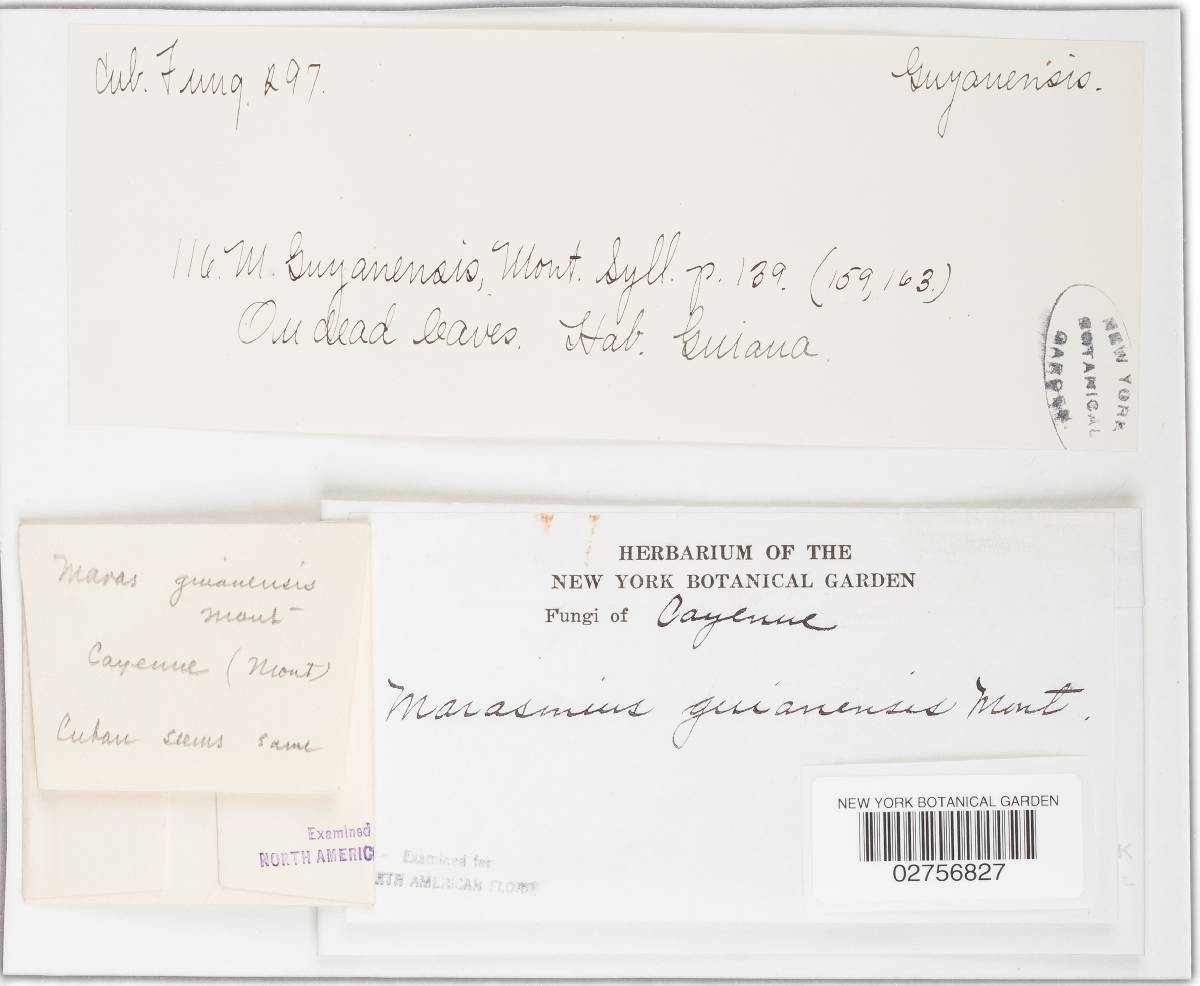 Cub. Fung. 297.
Guyanensis.
116. M. Guyanensis, Mont. Syll. p. 139. (159, 163.)
On dead leaves. Hab. Guiana.
NEW YORK
BOTANICAL
GARDEN.
HERBARIUM OF THE
NEW YORK BOTANICAL GARDEN
Fungi of Cayenne
Marasmius guianensis Mont.
Maras guianensis
Mont
Cayenne (Mont)
Cuban seems same
Examined
NORTH AMERIC
Examined for
RTH AMERICAN FLORA
NEW YORK BOTANICAL GARDEN
02756827